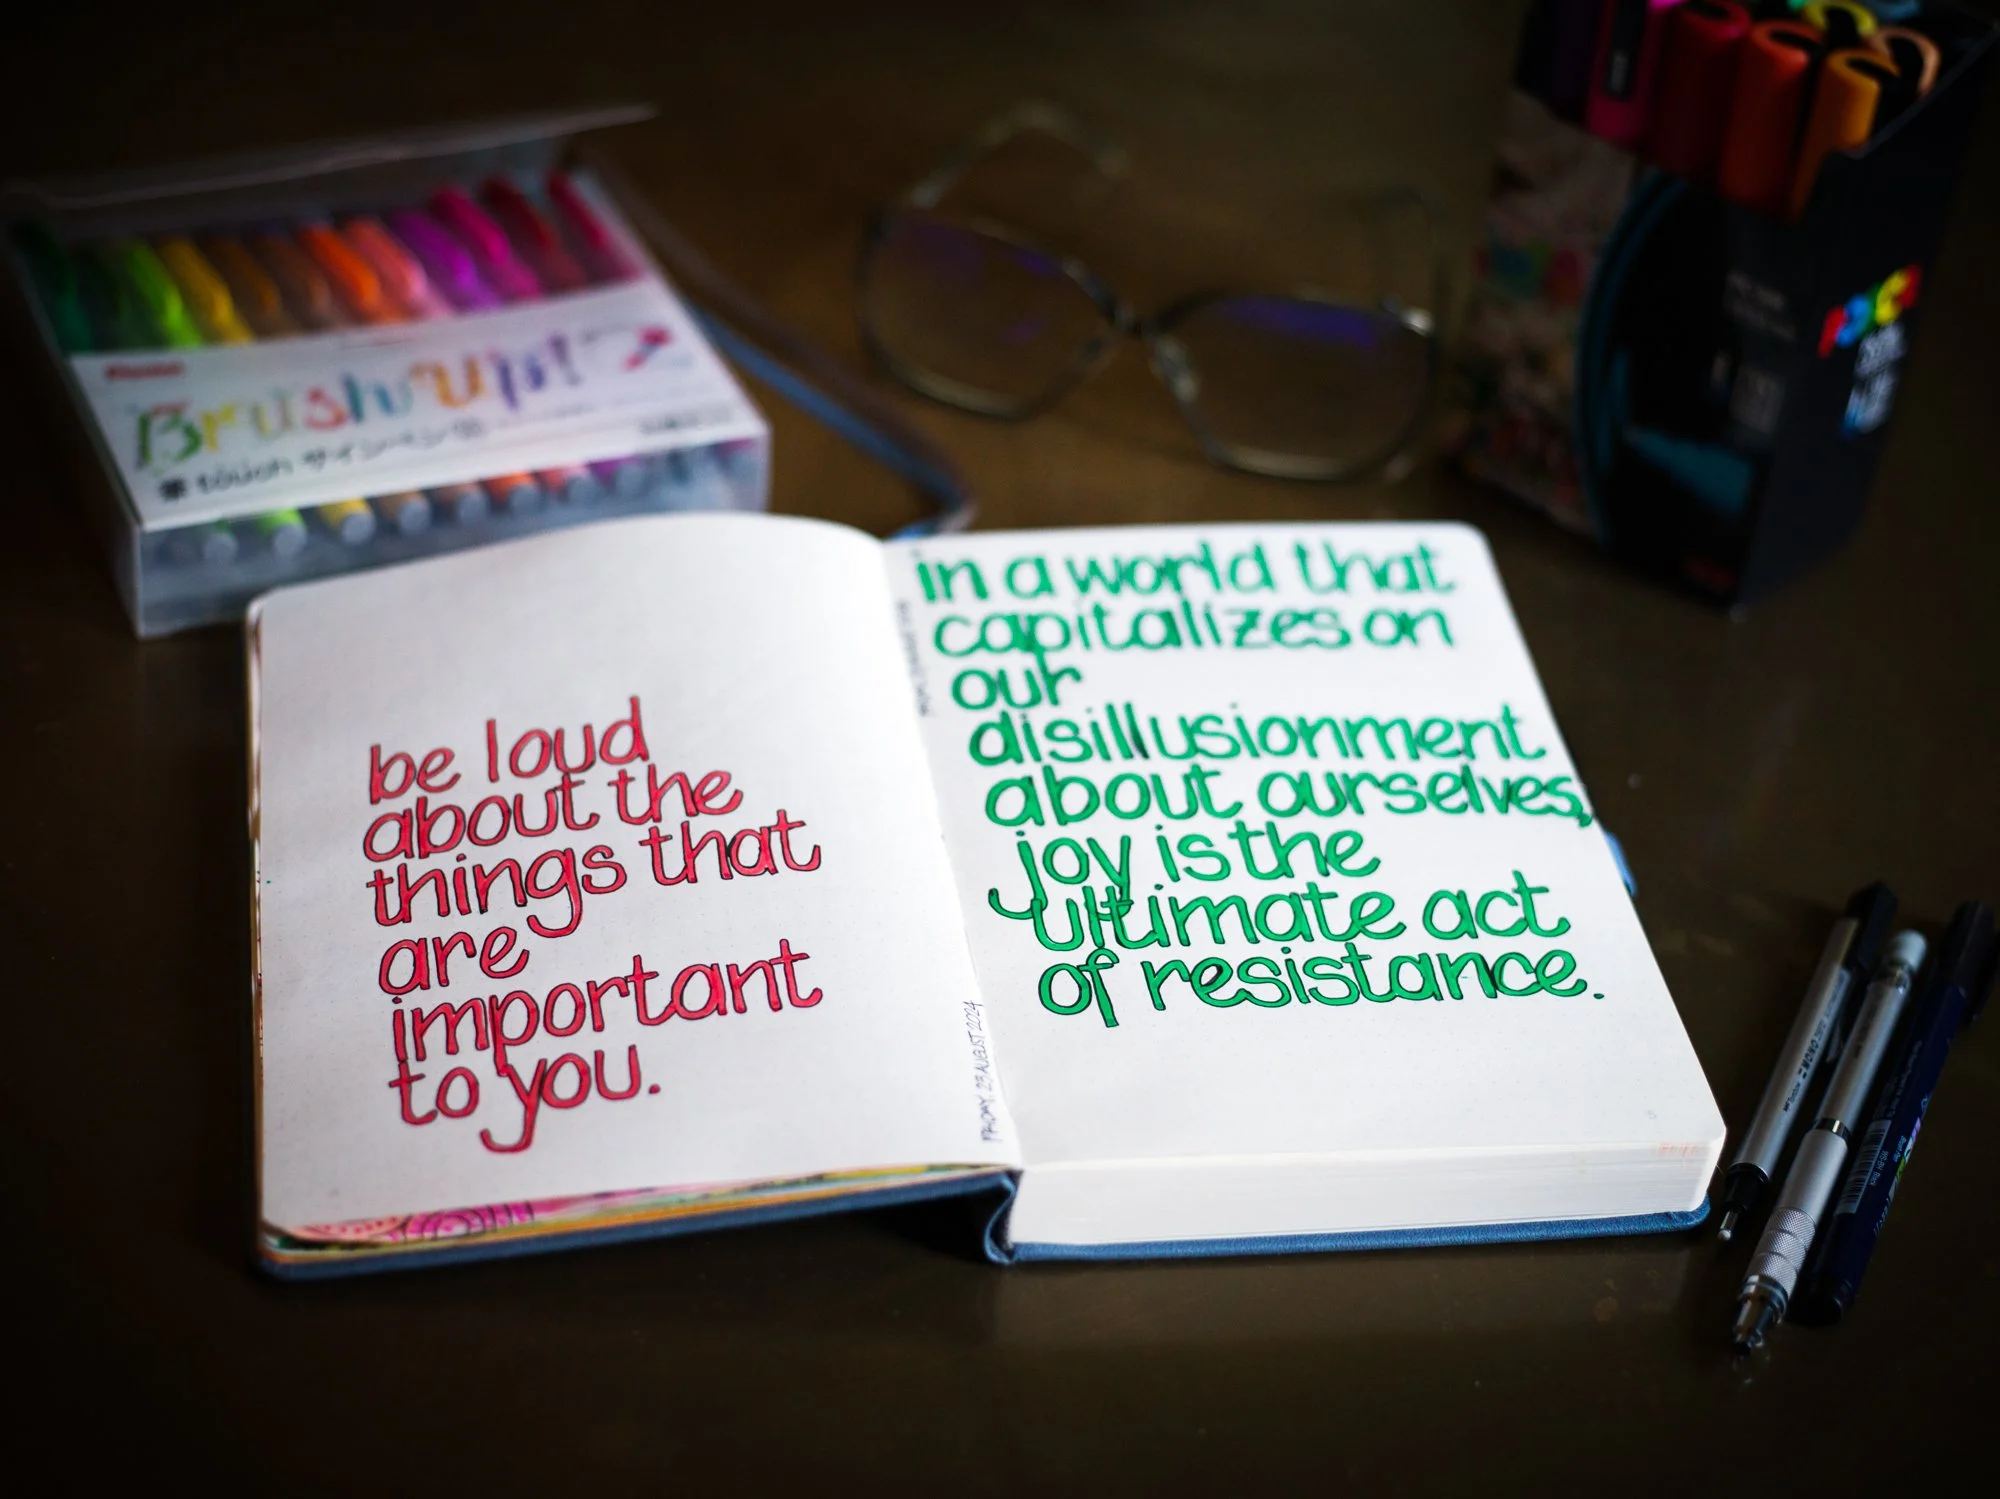 Pentel
Brush up!
筆touch サインペン
POSCA
be loud
about the
things that
are
important
to you.
FRIDAY. 23 AUGUST 2024
in a world that
capitalizes on
our
disillusionment
about ourselves,
joy is the
ultimate act
of resistance.